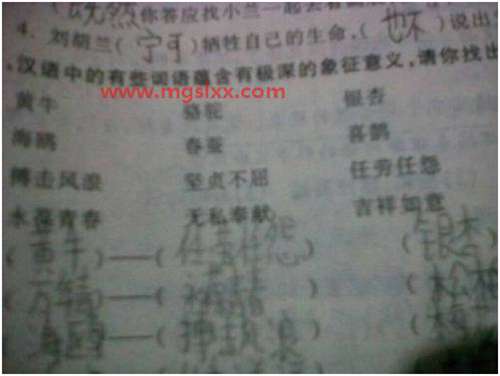 既然你答应找小兰一起去看
4. 刘胡兰(宁可)牺牲自己的生命,(也不)说出
汉语中的有些词语蕴含有极深的象征意义,请你找出
www.mgslxx.com
黄牛 骆驼 银杏
海鸥 春蚕 喜鹊
搏击风浪 坚贞不屈 任劳任怨
永葆青春 无私奉献 吉祥如意
(黄牛)——(任劳任怨) (银杏
( )——( ) (松柏
海鸥——搏击风浪 (梅